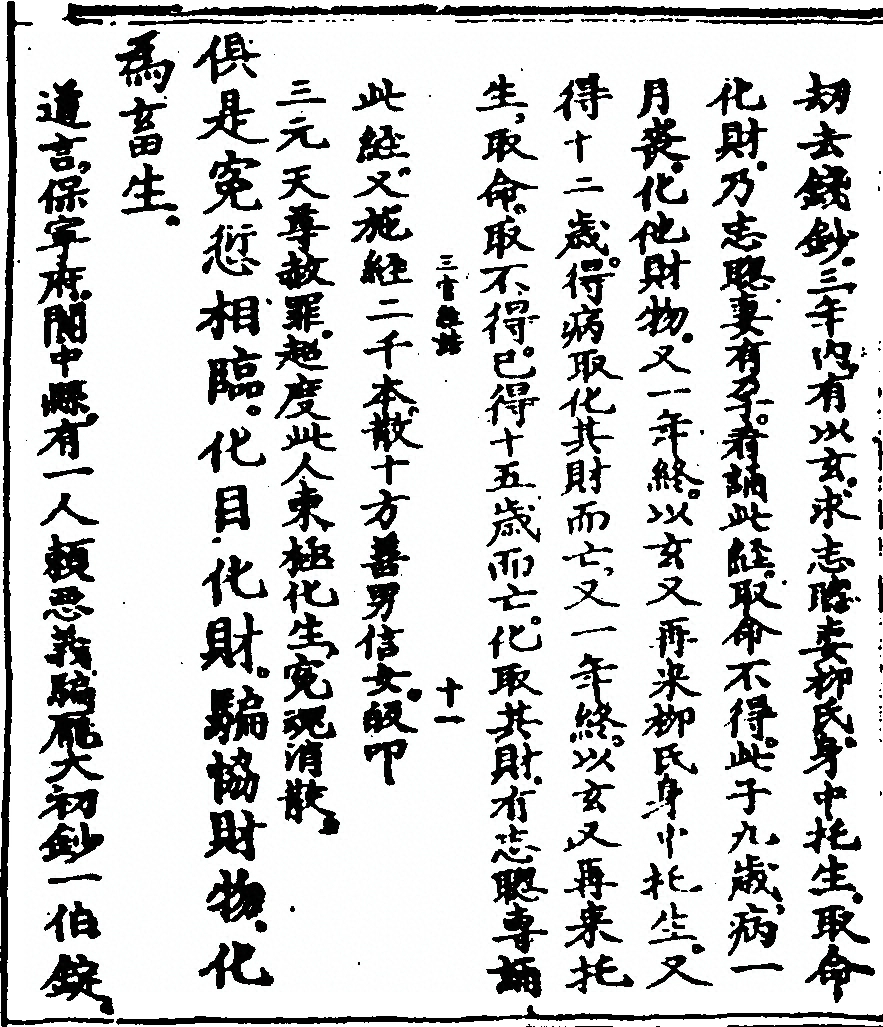 劫去錢鈔。三年內有以玄。求志聰妻柳氏身中托生。取命
化財。乃志聰妻有孕。看誦此経。取命不得。此子九歲，病一
月喪。化他財物。又一年終。以玄又再来柳氏身中托生。又
得十二歲。得病取化其財而亡，又一年終。以玄又再来托
生，取命。取不得已。得十五歲而亡。化取其財。有志聰專誦
三官経誥　十一
此経。又施経二千本。散十方善男信女。皈叩
三元天尊赦罪。超度此人東極化生，寃魂消散。
俱是寃愆相臨。化目化財。騙惱財物。化
為畜生。
道言。保寧府。閬中縣。有一人賴思義騙龎大初鈔一伯錠。